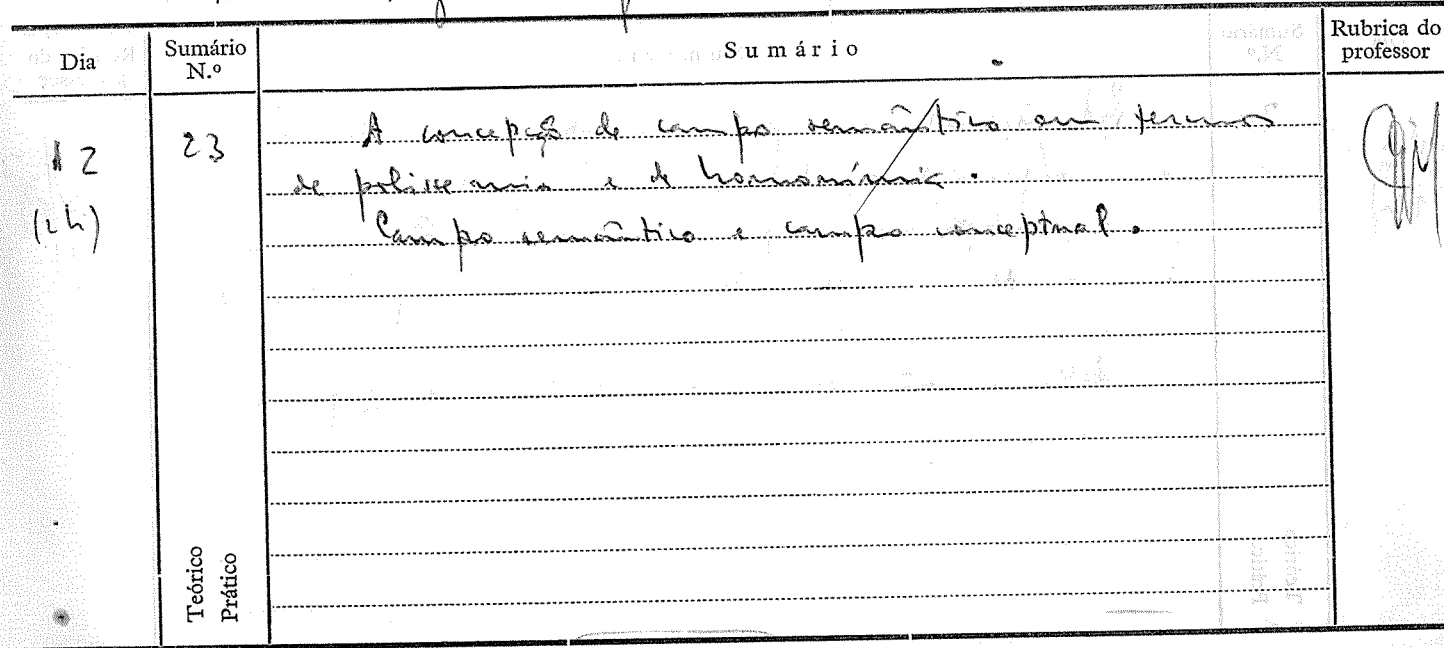 Dia
Sumário N.º
Sumário
Rubrica do professor
12
(2h)
23
A concepção de campo semântico em termos
de polissemia e de homonímia.
Campo semântico e campo conceptual.
Teórico
Prático